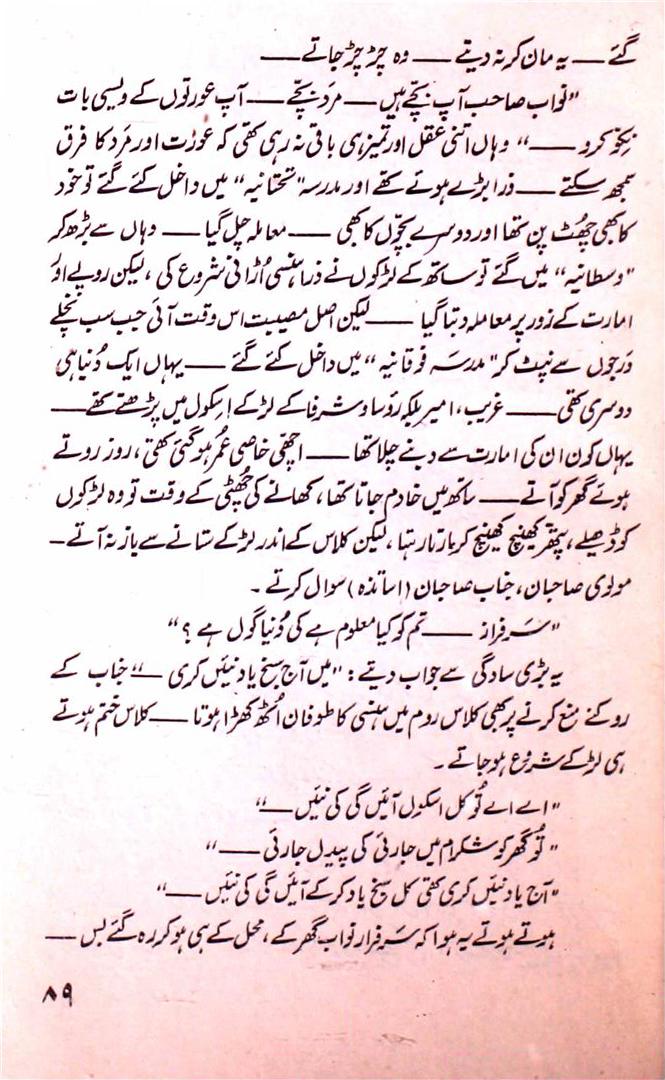 گئے — یہ مان کر نہ دیتے — وہ چڑ چڑ جاتے —
"نواب صاحب آپ بچّے ہیں — مرد بچّے — آپ عورتوں کے ویسی بات
نکّو کرو —" وہاں اتنی عقل اور تمیز ہی باقی نہ رہی تھی کہ عورت اور مَرد کا فرق
سمجھ سکتے — ذرا بڑے ہوئے تھے اور مدرسہ "تختانیہ" میں داخل کئے گئے تو خود
کا بھی چھُٹ پن تھا اور دوسرے بچّوں کا بھی — معاملہ چل گیا — وہاں سے بڑھ کر
"وسطانیہ" میں گئے تو ساتھ کے لڑکوں نے ذرا ہنسی اُڑانی شروع کی، لیکن روپے اور
امارت کے زور پر معاملہ دبتا گیا — لیکن اصل مصیبت اس وقت آئی جب سب نچلے
دَرجوں سے نپٹ کر "مدرسَہ فوقانیہ" میں داخل کئے گئے — یہاں ایک دُنیا ہی
دوسری تھی — غریب، امیر بلکہ روّسا و شرفا کے لڑکے اِسکول میں پڑھتے تھے —
یہاں کون ان کی امارت سے دبنے چلا تھا — اچھّی خاصی عُمر ہو گئی تھی، روز روتے
ہوئے گھر کو آتے — ساتھ میں خادم جاتا تھا، کھانے کی چھُٹی کے وقت تو وہ لڑکوں
کو ڈھیلے، پتھّر کھینچ کھینچ کر مارتا رہتا، لیکن کلاس کے اندر لڑکے ستانے سے باز نہ آتے —
مولوی صاحبان، جناب صاحبان (اساتذہ) سوال کرتے ۔
"سَرفراز — تم کو کیا معلوم ہے کی دُنیا گول ہے؟"
یہ بڑی سادگی سے جواب دیتے : "میں آج سبخ یاد نئیں کری —" جناب کے
روکنے منع کرنے پر بھی کلاس روم میں ہنسی کا طوفان اُٹھ کھڑا ہوتا — کلاس ختم ہوتے
ہی لڑکے شروع ہو جاتے ۔
"اے اے تُو کل اسکول آئیں گی کی نئیں —"
"تُو گھر کو شکرام میں جارئی کی پیدل جارئی —"
"آج یاد نئیں کری تھی کل سبخ یاد کر کے آئیں گی کی نئیں —"
ہوتے ہوتے یہ ہوا کہ سَرفراز نواب گھر کے، محل کے ہی ہو کر رہ گئے بس —
۸۹